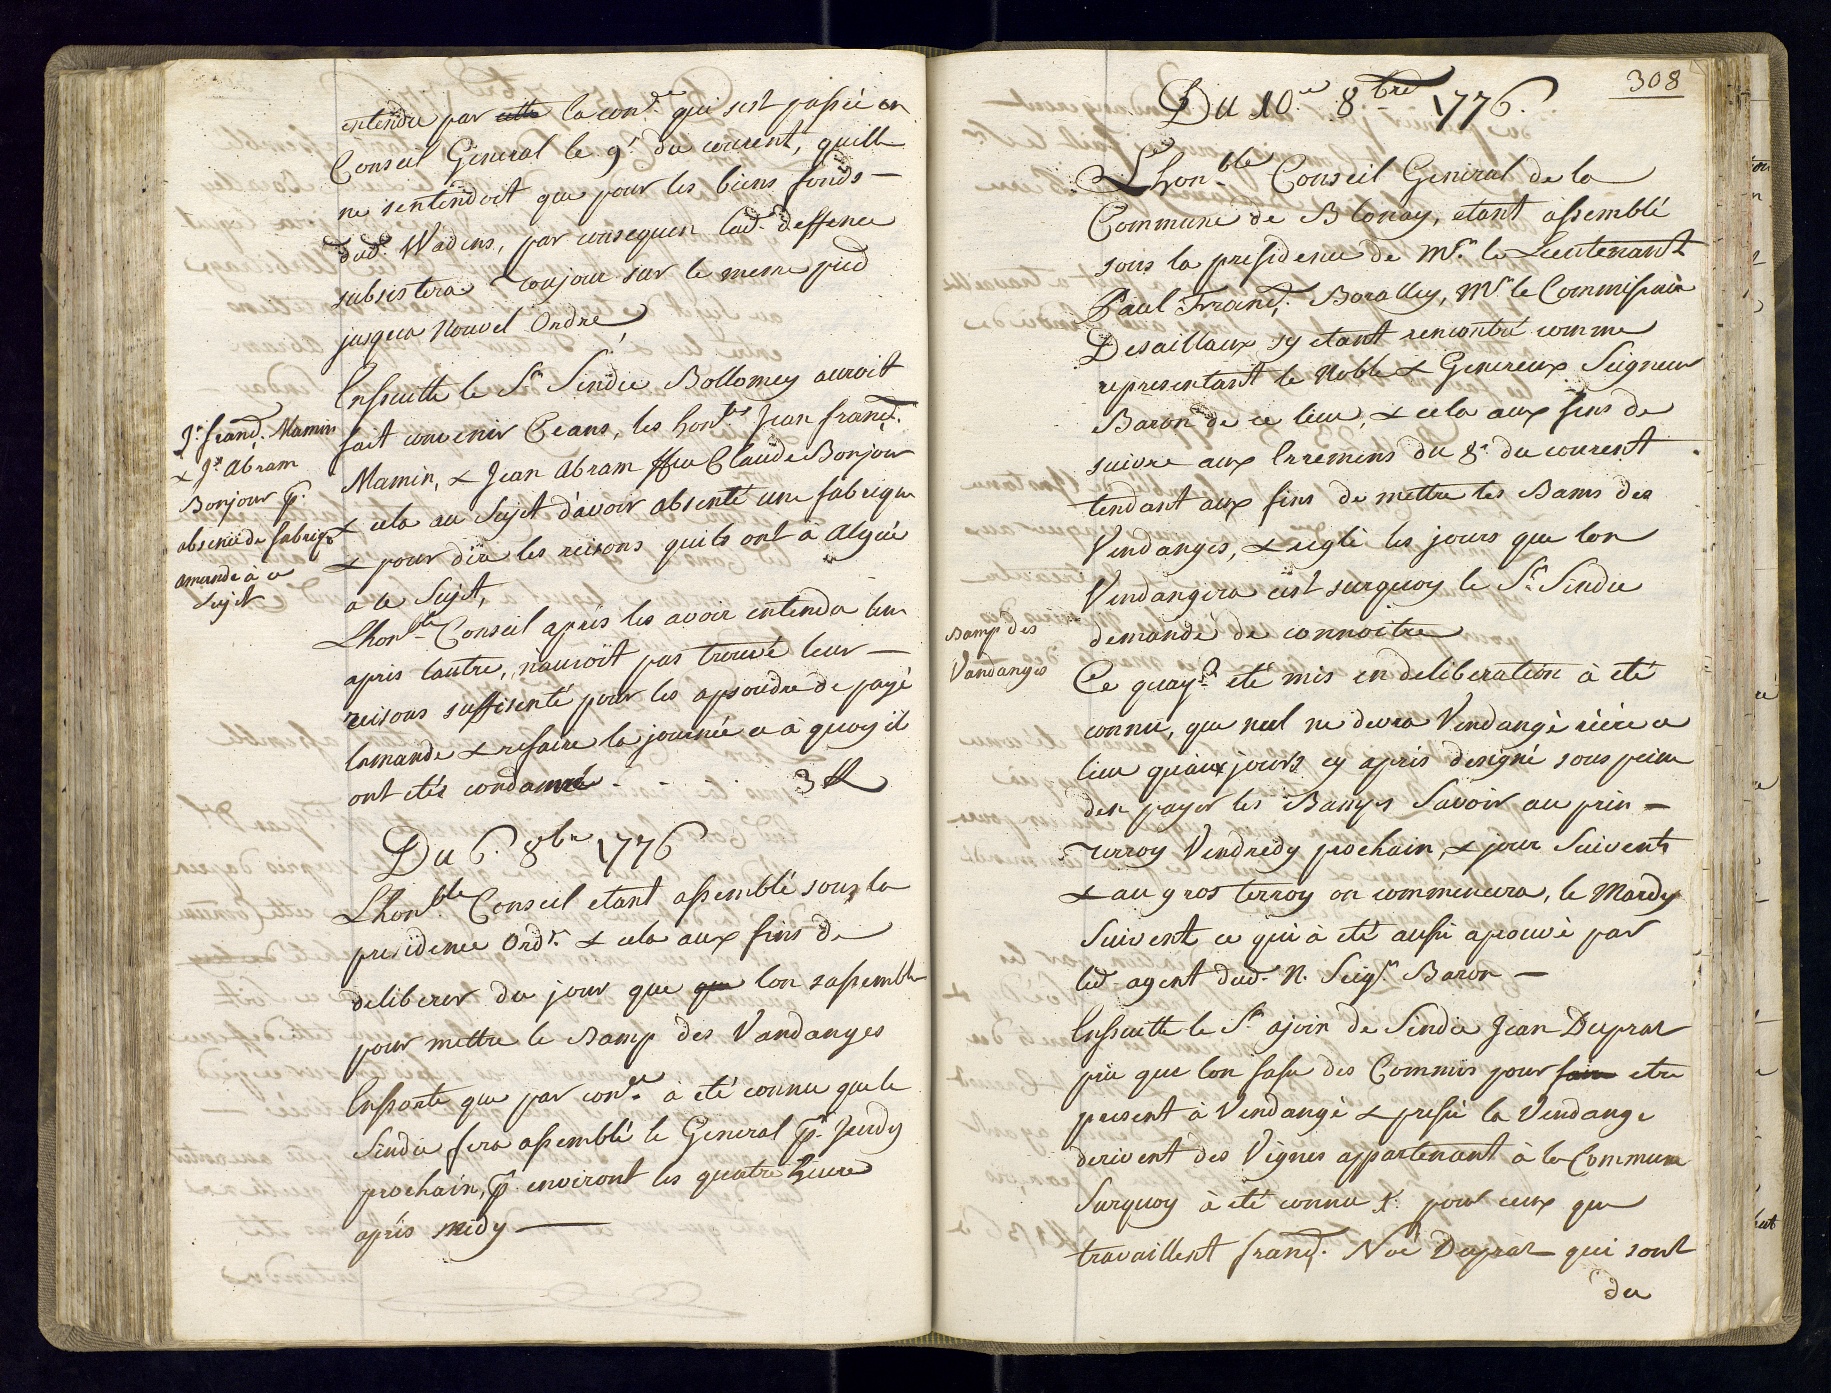 entendre par cette la con.ce qui sest passée en
Conseil General le 9.e du courent, quelle
ne sentendoit que pour les biens fonds —
dud. Wadens, par consequen lad. deffence
subsistera Toujour sur le meme pied
jusqua Nouvel Ordre
Ensuitte le S.r Sindic Bollomey auroit
fait convenir Ceans, les hon.bles Jean franç.
Mamin, & Jean Abram ffeu Claude Bonjour
& cela au Sujet d'avoir absenté une fabrique
& pour dire les reisons quils ont à Algué
a ce Sujet,
J.n franç. Mamin
& J.n Abram
Bonjour p.r
absence de fabriq.e
amande à ce
Sujet
Lhon.ble Conseil après les avoir entendu lun
apris lautre, nauroit pas trouvé leur —
reisons suffisenté pour les apsoudre de payé
lamande & refaire la journée ce à quoy ils
ont étés condamné - - - - 3 ll
Du 6.e 8bre 1776
Lhon.ble Conseil etant assemblé sous la
presidence Ord.re & cela aux fins de
deliberer du jour que que lon sassemble
pour mettre le Bamp des Vandanges
Ensorte que par con.ce à été connu que le
Sindic fera assemblé le General p.r Jeudy
prochain, p.r environt les quatre heure
après midy —
308
Du 10.e 8bre 1776.
Lhon.ble Conseil General de la
Commune de Blonay, etant assemblé
sous la presidence de M.r le Lieutenant
Paul Franç. Boralley, M.r le Commissaire
Desaillaux sy etant rencontré comme
representant le Noble & Genereux Seigneur
Baron de ce lieu, & cela aux fins de
suivre aux Erremens du 8.e du courent
tendant aux fins de mettre les Bams des
Vendanges, & reglé les jours que lon
Vendangera cest surquoy le S.r Sindic
demande de connoitre
Bamp des
Vandanges
Ce quay.t eté mis en deliberation à eté
connu, que nul ne devra Vendangé riére ce
lieu quaux jours cy apris designé sous peine
den payer les Bamps Savoir au prin —
Terroy Vendredy prochain, & jour Suivents
& au gros terroy on commencera, le Mardy
Suivent ce qui à eté aussi aprouvé par
led. agent dud. N. Seig.r Baron —
Ensuitte le S.r ajoin de Sindic Jean Dupraz
prie que lon fasse des Commis pour faire etre
present à Vendangé & pressé la Vendange
derivent des Vignes appartenant à la Commune
Surquoy à été connu p.r pour ceux que
travaillent franç. Noé Dupraz qui sont
du